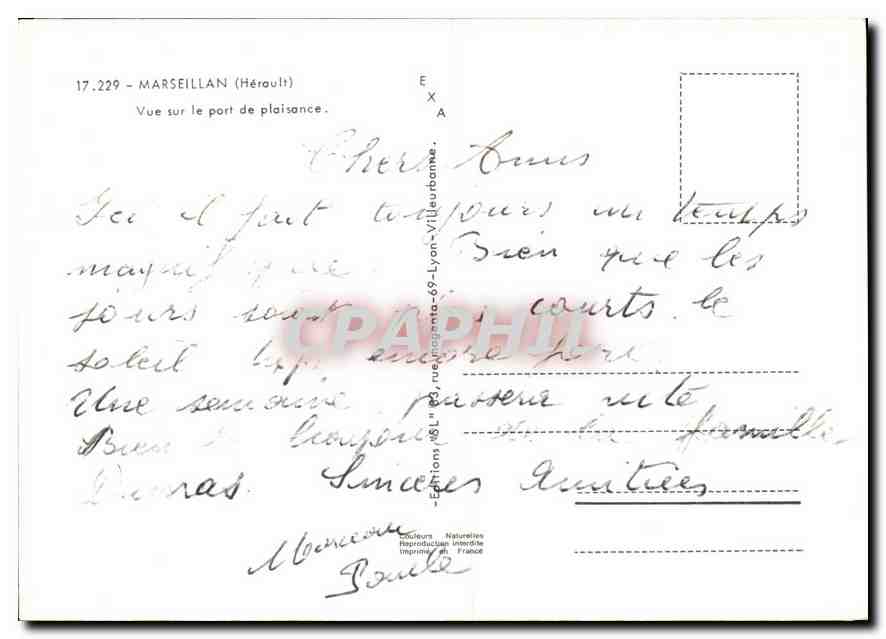 17.229 - MARSEILLAN (Hérault)
Vue sur le port de plaisance.
EXA
-Editions "SL" 83, rue magenta-69-Lyon-Villeurbanne.
Chers Amis
Ici il fait toujours un temps
magnifique. Bien que les
jours soient plus courts. le
soleil tape encore fort.
Une semaine passera vite
Bien le bonjour de la famille
Sincères Amitiées
Marceau
Paule
Couleurs Naturelles
Reproduction interdite
Imprimé en France
CPAPHIL